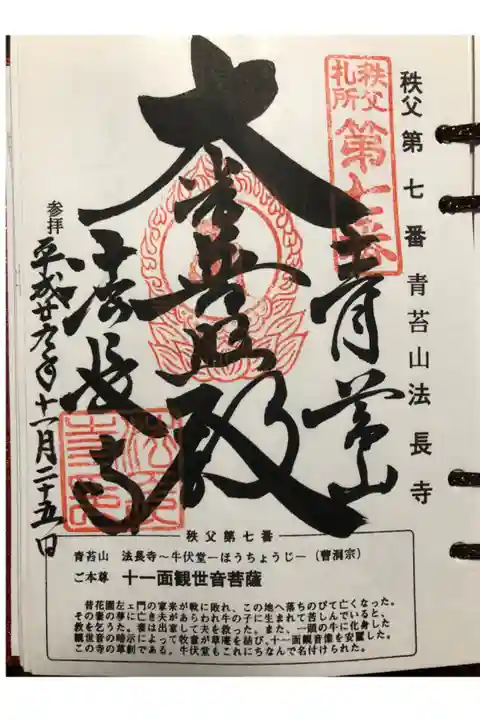 秩父第七番青苔山法長寺
秩父
札所
第七番
青苔山
大悲殿
法長寺
参拝
平成廿九年十一月二十五日
秩父第七番
青苔山 法長寺~牛伏堂―ほうちょうじ―(曹洞宗)
ご本尊 十一面観世音菩薩
昔花園左ェ門の家来が戦に敗れ、この地へ落ちのびて亡くなった。
その妻の夢に亡き夫があらわれ牛の子に生まれて苦しんでいると、
救を乞うた。妻は出家して夫を救った。また、一頭の牛に化身した
観世音の暗示によって牧童が草庵を結び、十一面観音像を安置した。
この寺の草創である。牛伏堂もこれにちなんで名付けられた。